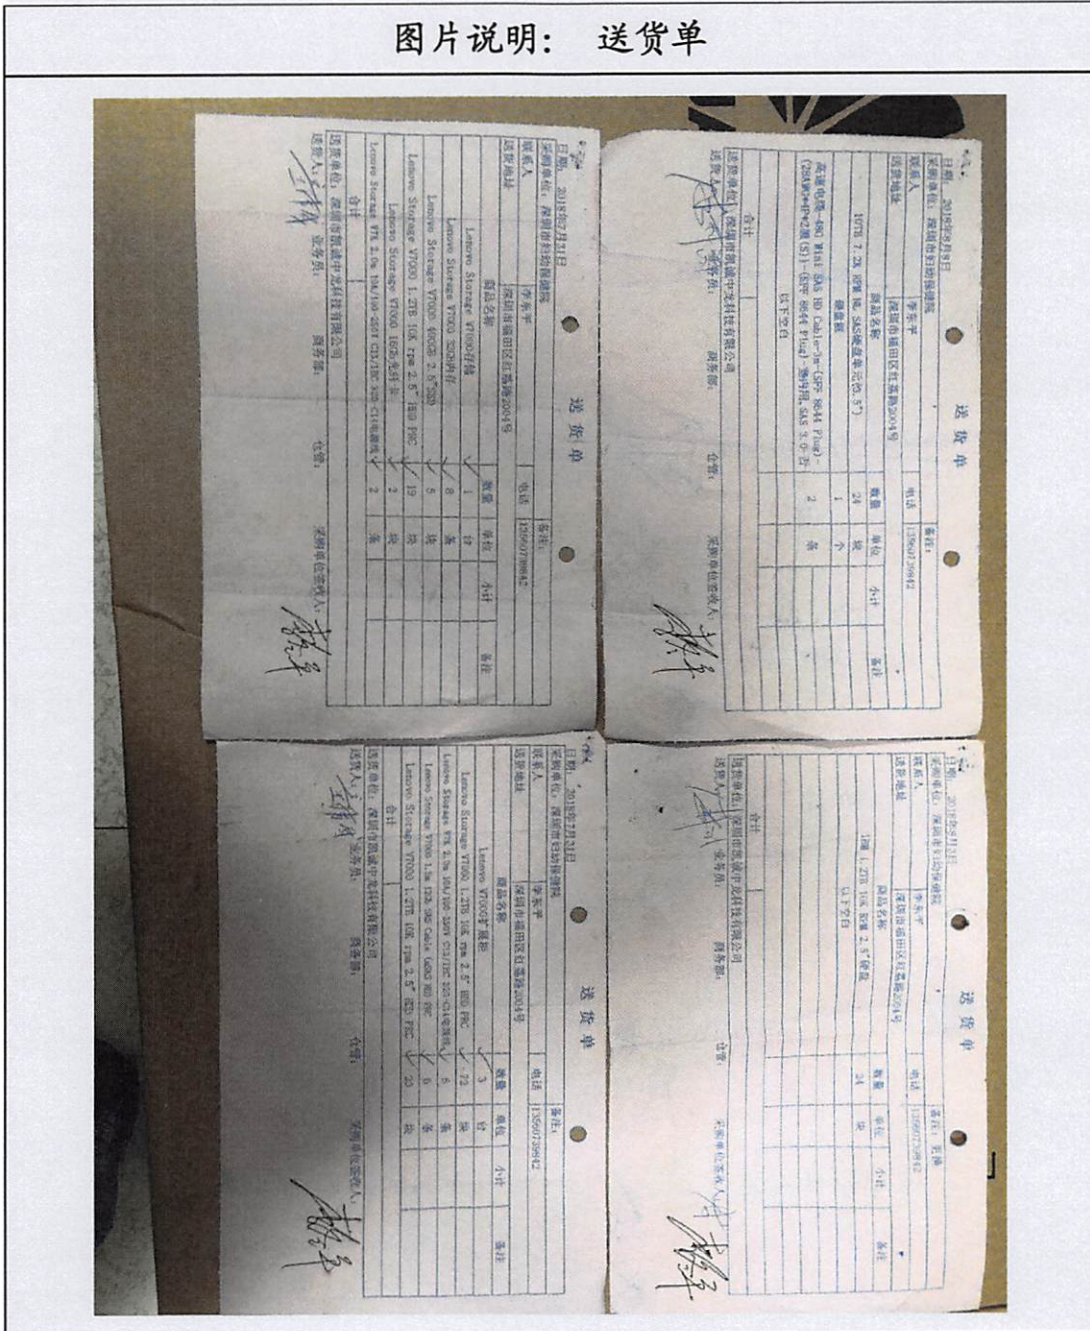 图片说明： 送货单
送货单
日期：2018年7月31日
备注：
采购单位：深圳市妇幼保健院
联系人 李东平 电话 13560739842
送货地址 深圳市福田区红荔路2004号
商品名称 数量 单位 小计 备注
Lenovo Storage V7000存储 1 台
Lenovo Storage V7000 32GB内存 8 条
Lenovo Storage V7000 400GB 2.5"SSD 5 块
Lenovo Storage V7000 1.2TB 10K rpm 2.5" HDD FRC 19 块
Lenovo Storage V7000 16Gb光纤卡 2 块
Lenovo Storage V7K 2.0m 10A/100-250V C13/IEC 320-C14电源线 2 条
合计
送货单位：深圳市凯诚中龙科技有限公司
送货人： 业务员： 商务部： 仓管： 采购单位签收人：
送货单
日期：2018年8月8日
备注：
采购单位：深圳市妇幼保健院
联系人 李东平 电话 13560739842
送货地址 深圳市福田区红荔路2004号
商品名称 数量 单位 小计 备注
10TB 7.2K RPM NL SAS硬盘单元 24 块
硬盘框 1 个
高速电缆-48G Mini SAS HD Cable-3m-(SFF 8644 Plug)- 2 条
以下空白
合计
送货单位：深圳市凯诚中龙科技有限公司
送货人： 业务员： 商务部： 仓管： 采购单位签收人：
送货单
日期：2018年7月31日
备注：
采购单位：深圳市妇幼保健院
联系人 李东平 电话 13560739842
送货地址 深圳市福田区红荔路2004号
商品名称 数量 单位 小计 备注
Lenovo V7000扩展柜 3 台
Lenovo Storage V7000 1.2TB 10K rpm 2.5" HDD FRC 72 块
Lenovo Storage V7K 2.0m 10A/100-250V C13/IEC 320-C14电源线 6 条
Lenovo Storage V7000 1.5m 12Gb SAS Cable 6 条
Lenovo Storage V7000 1.2TB 10K rpm 2.5" HDD FRC 20 块
合计
送货单位：深圳市凯诚中龙科技有限公司
送货人： 业务员： 商务部： 仓管： 采购单位签收人：
送货单
备注：更换
采购单位：深圳市妇幼保健院
联系人 李东平 电话 13560739842
送货地址 深圳市福田区红荔路2004号
商品名称 数量 单位 小计 备注
IBM 1.2TB 10K RPM 2.5"硬盘 24 块
以下空白
合计
送货单位：深圳市凯诚中龙科技有限公司
送货人： 业务员： 商务部： 仓管： 采购单位签收人：